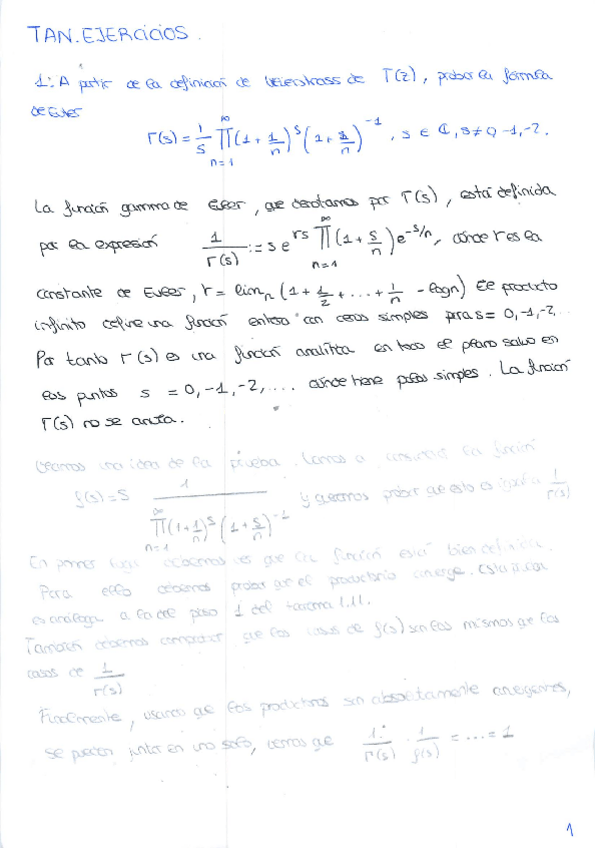 TAN. EJERCICIOS.
1: A partir de la definición de Weierstrass de Γ(z), probar la fórmula
de Euler
Γ(s) = 1/s ∏_{n=1}^{∞} (1 + 1/n)^s (1 + s/n)^{-1}, s ∈ ℂ, s ≠ 0, -1, -2.
La función gamma de Euler, que denotamos por Γ(s), está definida
por la expresión 1/Γ(s) := s e^{γs} ∏_{n=1}^{∞} (1 + s/n) e^{-s/n}, dónde γ es la
constante de Euler, γ = lim_n (1 + 1/2 + ... + 1/n - log n) El producto
infinito define una función entera con ceros simples para s = 0, -1, -2, ..
Por tanto Γ(s) es una función analítica en todo el plano salvo en
los puntos s = 0, -1, -2, .... dónde tiene polos simples. La función
Γ(s) no se anula.
Veamos una idea de la prueba. Vamos a considerar la función
f(s) = s 1/(∏_{n=1}^{∞} (1 + 1/n)^s (1 + s/n)^{-1}) y queremos probar que esto es igual a 1/Γ(s)
En primer lugar debemos ver que la función está bien definida.
Para ello debemos probar que el productorio converge. Esta
es análoga a la del paso 1 del teorema 1.11.
También debemos comprobar que los ceros de f(s) son los mismos que los
ceros de 1/Γ(s)
Finalmente, usando que los productorios son absolutamente convergentes,
se pueden juntar en uno solo, vemos que 1/Γ(s) · 1/f(s) = ... = 1
1